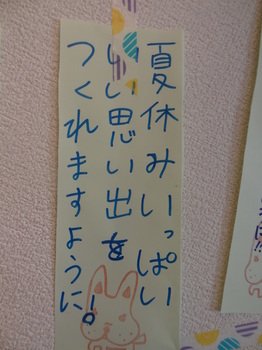 夏休みいっぱい
いい思い出を
つくれますように!。